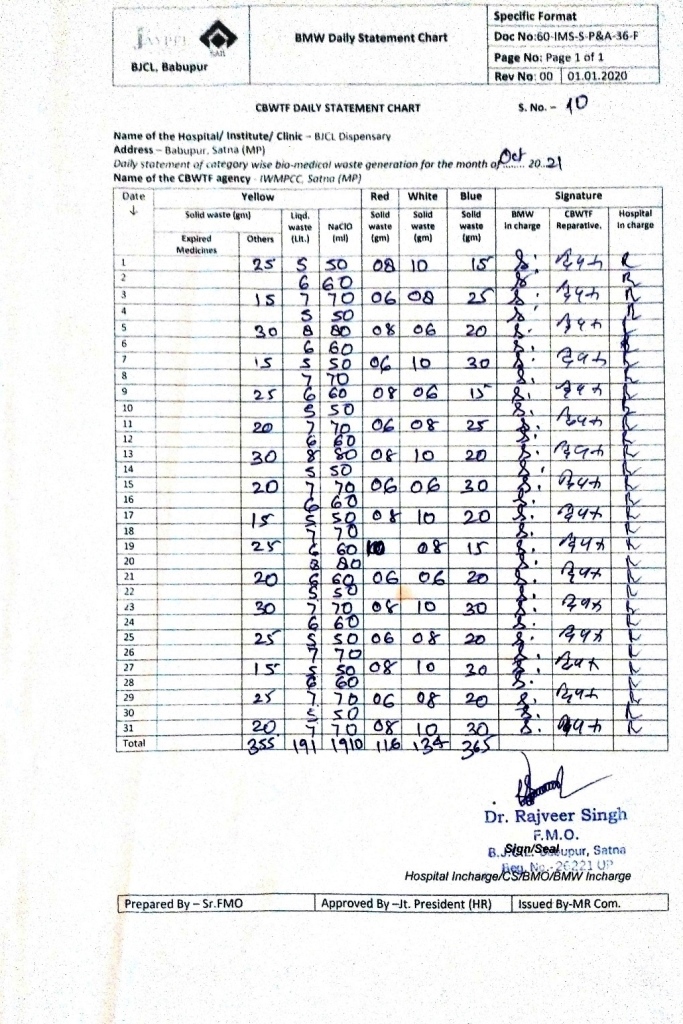 JAYPEE
SAIL
BJCL, Babupur
BMW Daily Statement Chart
Specific Format
Doc No:60-IMS-S-P&A-36-F
Page No: Page 1 of 1
Rev No: 00 01.01.2020
CBWTF DAILY STATEMENT CHART S. No. – 10
Name of the Hospital/ Institute/ Clinic – BJCL Dispensary
Address – Babupur, Satna (MP)
Daily statement of category wise bio-medical waste generation for the month of Oct 20..21
Name of the CBWTF agency - IWMPCC, Satna (MP)
Date Yellow Red White Blue Signature
↓ Solid waste (gm) Liqd. waste (Lit.) NaClO (ml) Solid waste (gm) Solid waste (gm) Solid waste (gm) BMW In charge CBWTF Reparative. Hospital In charge
Expired Medicines Others
1 25 5 50 08 10 15
2 6 60
3 15 7 70 06 08 25
4 5 50
5 30 8 80 08 06 20
6 6 60
7 15 5 50 06 10 30
8 7 70
9 25 6 60 08 06 15
10 5 50
11 20 7 70 06 08 25
12 6 60
13 30 8 80 08 10 20
14 5 50
15 20 7 70 06 06 30
16 6 60
17 15 5 50 08 10 20
18 7 70
19 25 6 60 08 15
20 8 80
21 20 6 60 06 06 20
22 5 50
23 30 7 70 08 10 30
24 6 60
25 25 5 50 06 08 20
26 7 70
27 15 5 50 08 10 30
28 6 60
29 25 7 70 06 08 20
30 5 50
31 20 7 70 08 10 30
Total 355 191 1910 116 134 365
Dr. Rajveer Singh
F.M.O.
Sign/Seal
Satna
Reg. No.- 26221 UP
Hospital Incharge/CS/BMO/BMW Incharge
Prepared By – Sr.FMO Approved By –Jt. President (HR) Issued By-MR Com.